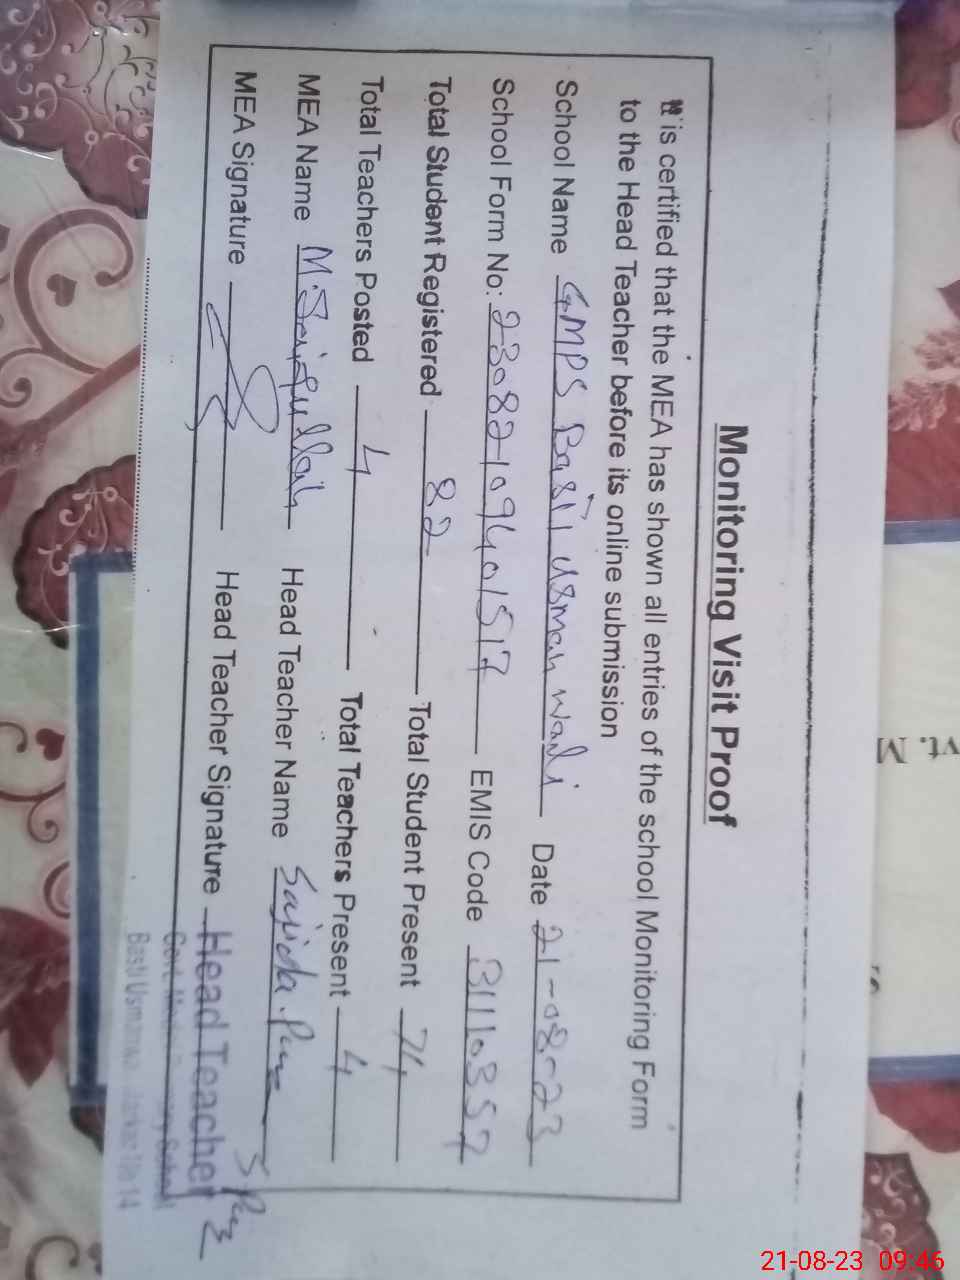 Monitoring Visit Proof
It is certified that the MEA has shown all entries of the school Monitoring Form
to the Head Teacher before its online submission
School Name GMPS Basti Usman wali Date 21-08-23
School Form No: 23082109401517 EMIS Code 31110357
Total Student Registered 82 Total Student Present 74
Total Teachers Posted 4 Total Teachers Present 4
MEA Name M.Saifullah Head Teacher Name Sajida
MEA Signature Head Teacher Signature
Head Teacher
Govt. School
Basti Usman 14
vt. M
21-08-23 09:46